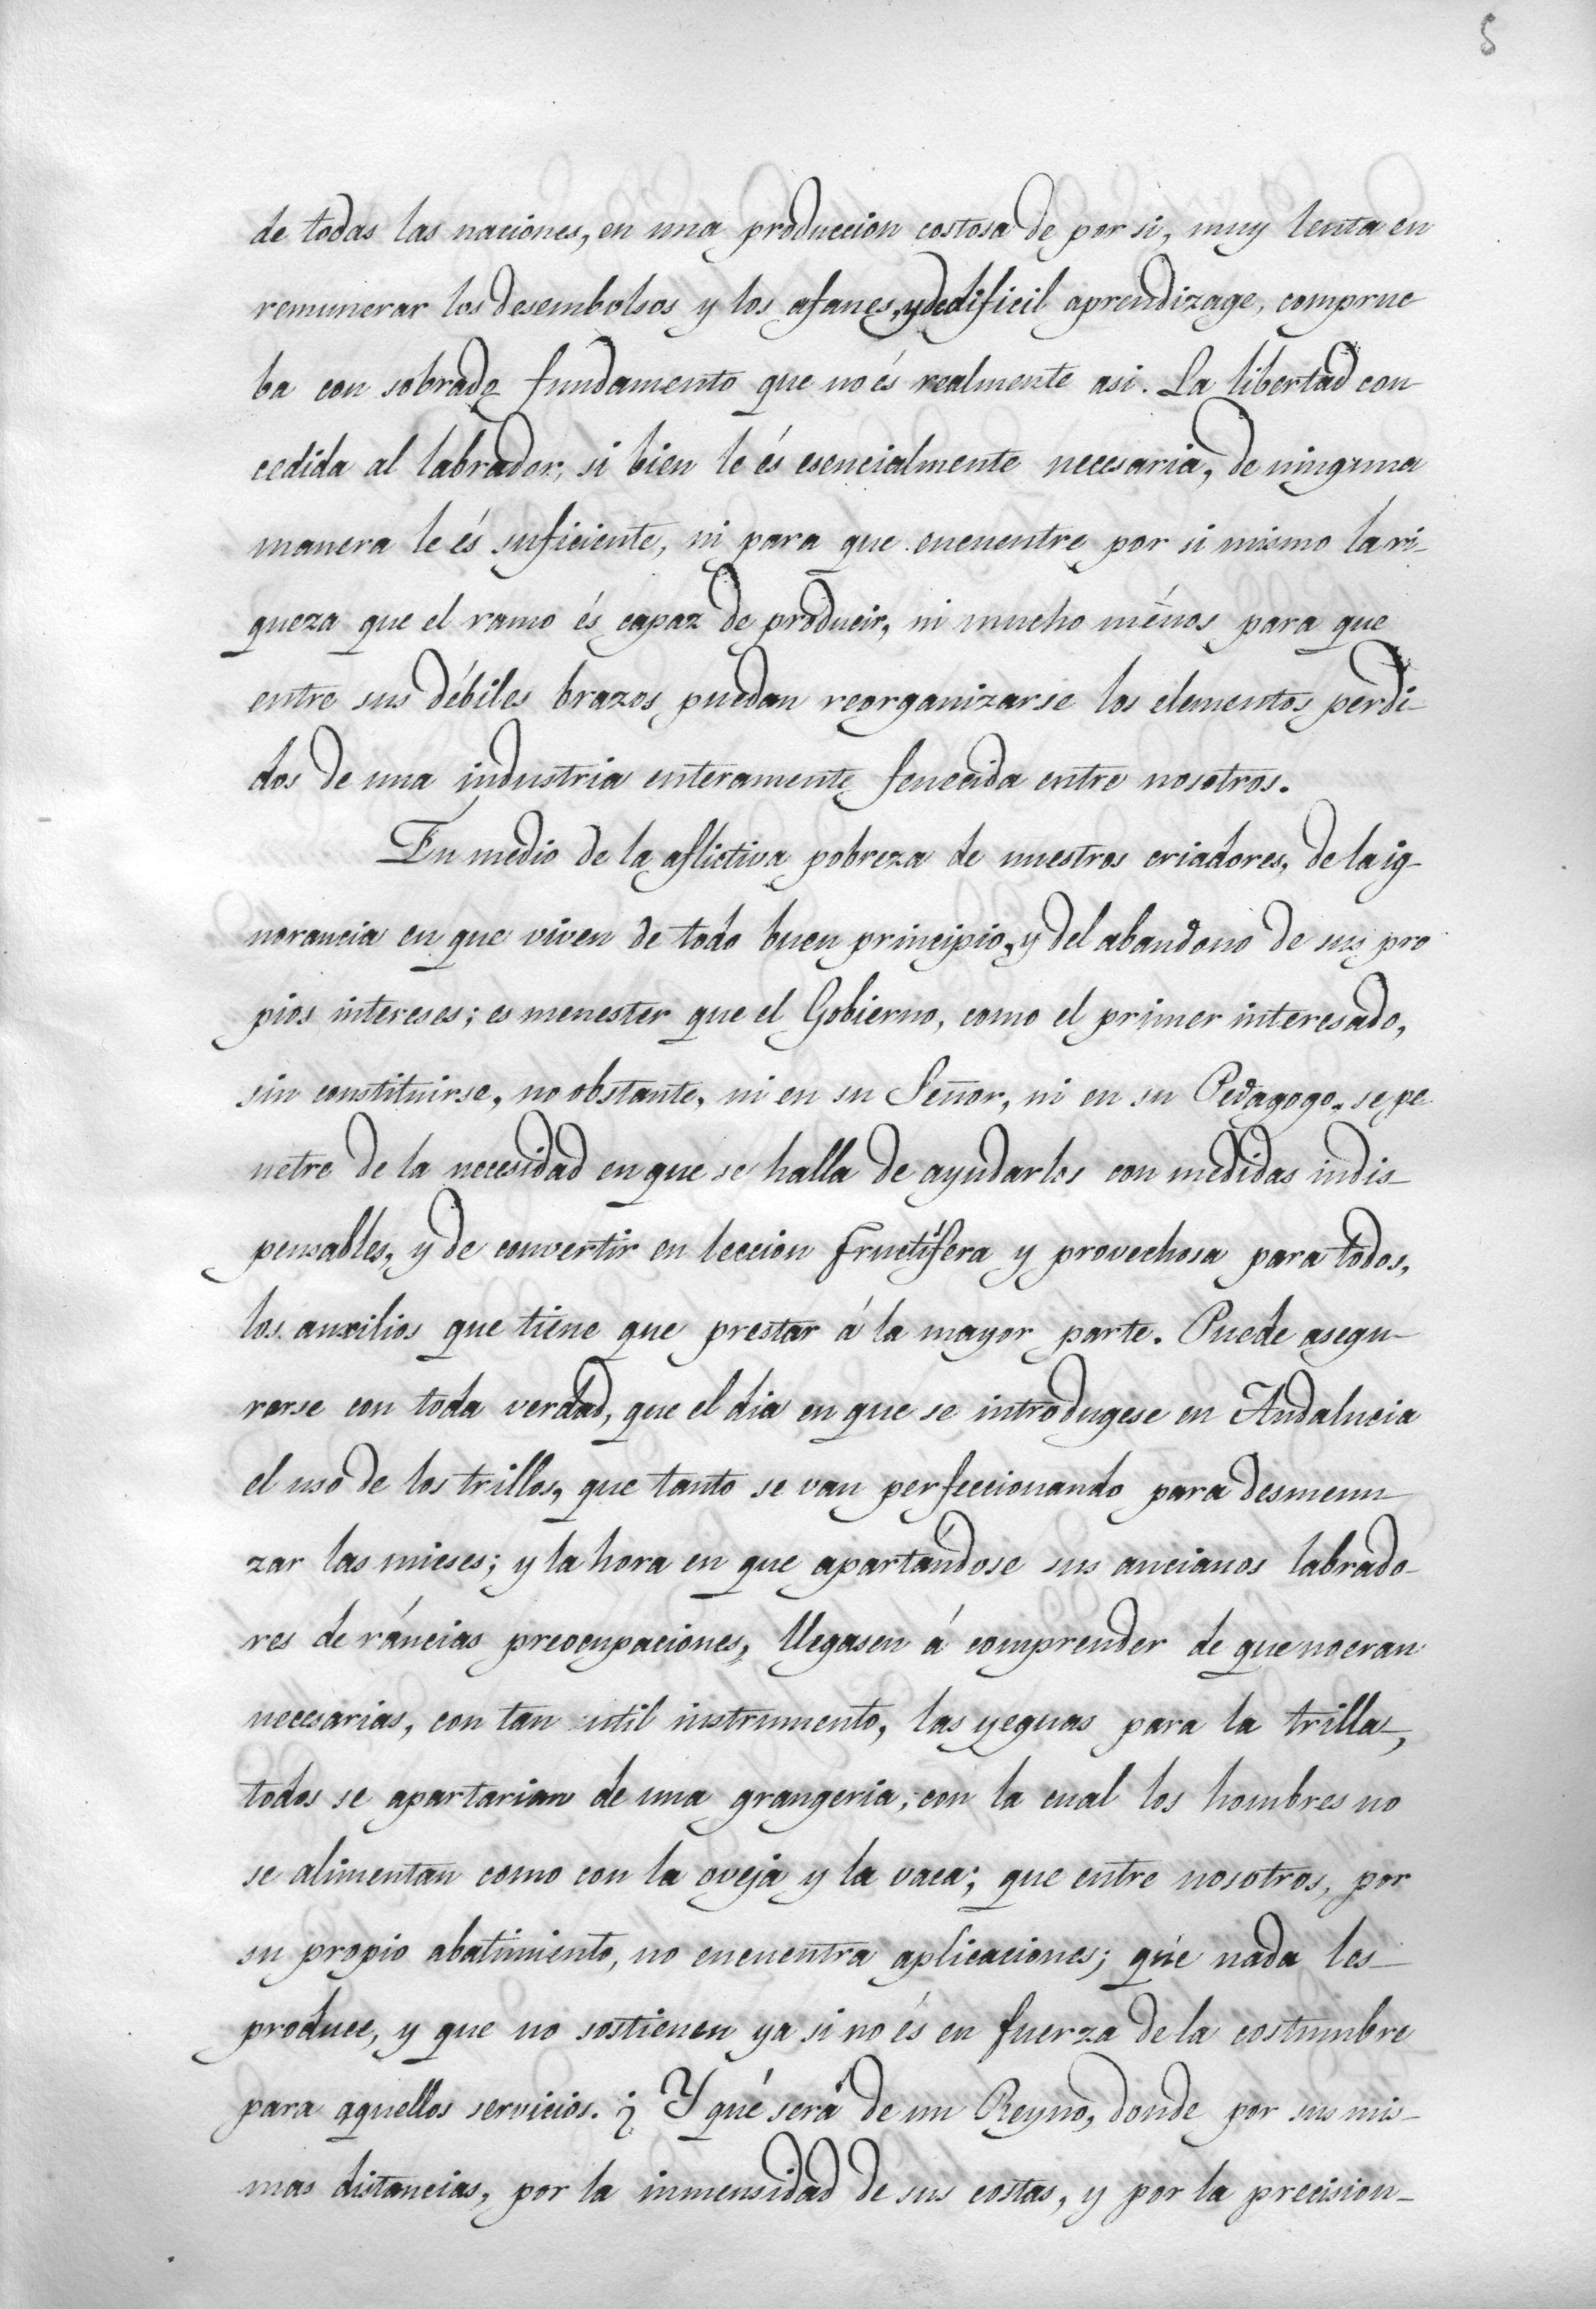 5
de todas las naciones, en una produccion costosa de por si, muy lenta en
remunerar los desembolsos y los afanes, y de dificil aprendizage, comprue
ba con sobrado fundamento que no és realmente asi. La libertad con
cedida al labrador, si bien le és esencialmente necesaria, de ninguna
manera le és suficiente, ni para que encuentre por si mismo la ri-
queza que el ramo és capaz de producir, ni mucho ménos para que
entre sus débiles brazos puedan reorganizarse los elementos perdi-
dos de una industria enteramente fenecida entre nosotros.
En medio de la aflictiva pobreza de nuestros criadores, de la ig-
norancia en que viven de todo buen principio, y del abandono de sus pro
pios intereses; es menester que el Gobierno, como el primer interesado,
sin constituirse, no obstante, ni en su Señor, ni en su Pedagogo, se pe-
netre de la necesidad en que se halla de ayudarlos con medidas indis-
pensables, y de convertir en leccion fructífera y provechosa para todos,
los auxilios que tiene que prestar á la mayor parte. Puede asegu-
rarse con toda verdad, que el dia en que se introdugese en Andalucia
el uso de los trillos, que tanto se van perfeccionando para desmenu-
zar las mieses; y la hora en que apartándose sus ancianos labrado-
res de ráncias preocupaciones, llegasen á comprender de que no eran
necesarias, con tan util instrumento, las yeguas para la trilla-,
todos se apartarian de una grangeria, con la cual los hombres no
se alimentan como con la oveja y la vaca; que entre nosotros, por
su propio abatimiento, no encuentra aplicaciones; que nada les-
produce, y que no sostienen ya si no és en fuerza de la costumbre
para aquellos servicios. ¿Y qué será de un Reyno, donde por sus mis-
mas distancias, por la inmensidad de sus costas, y por la precision-